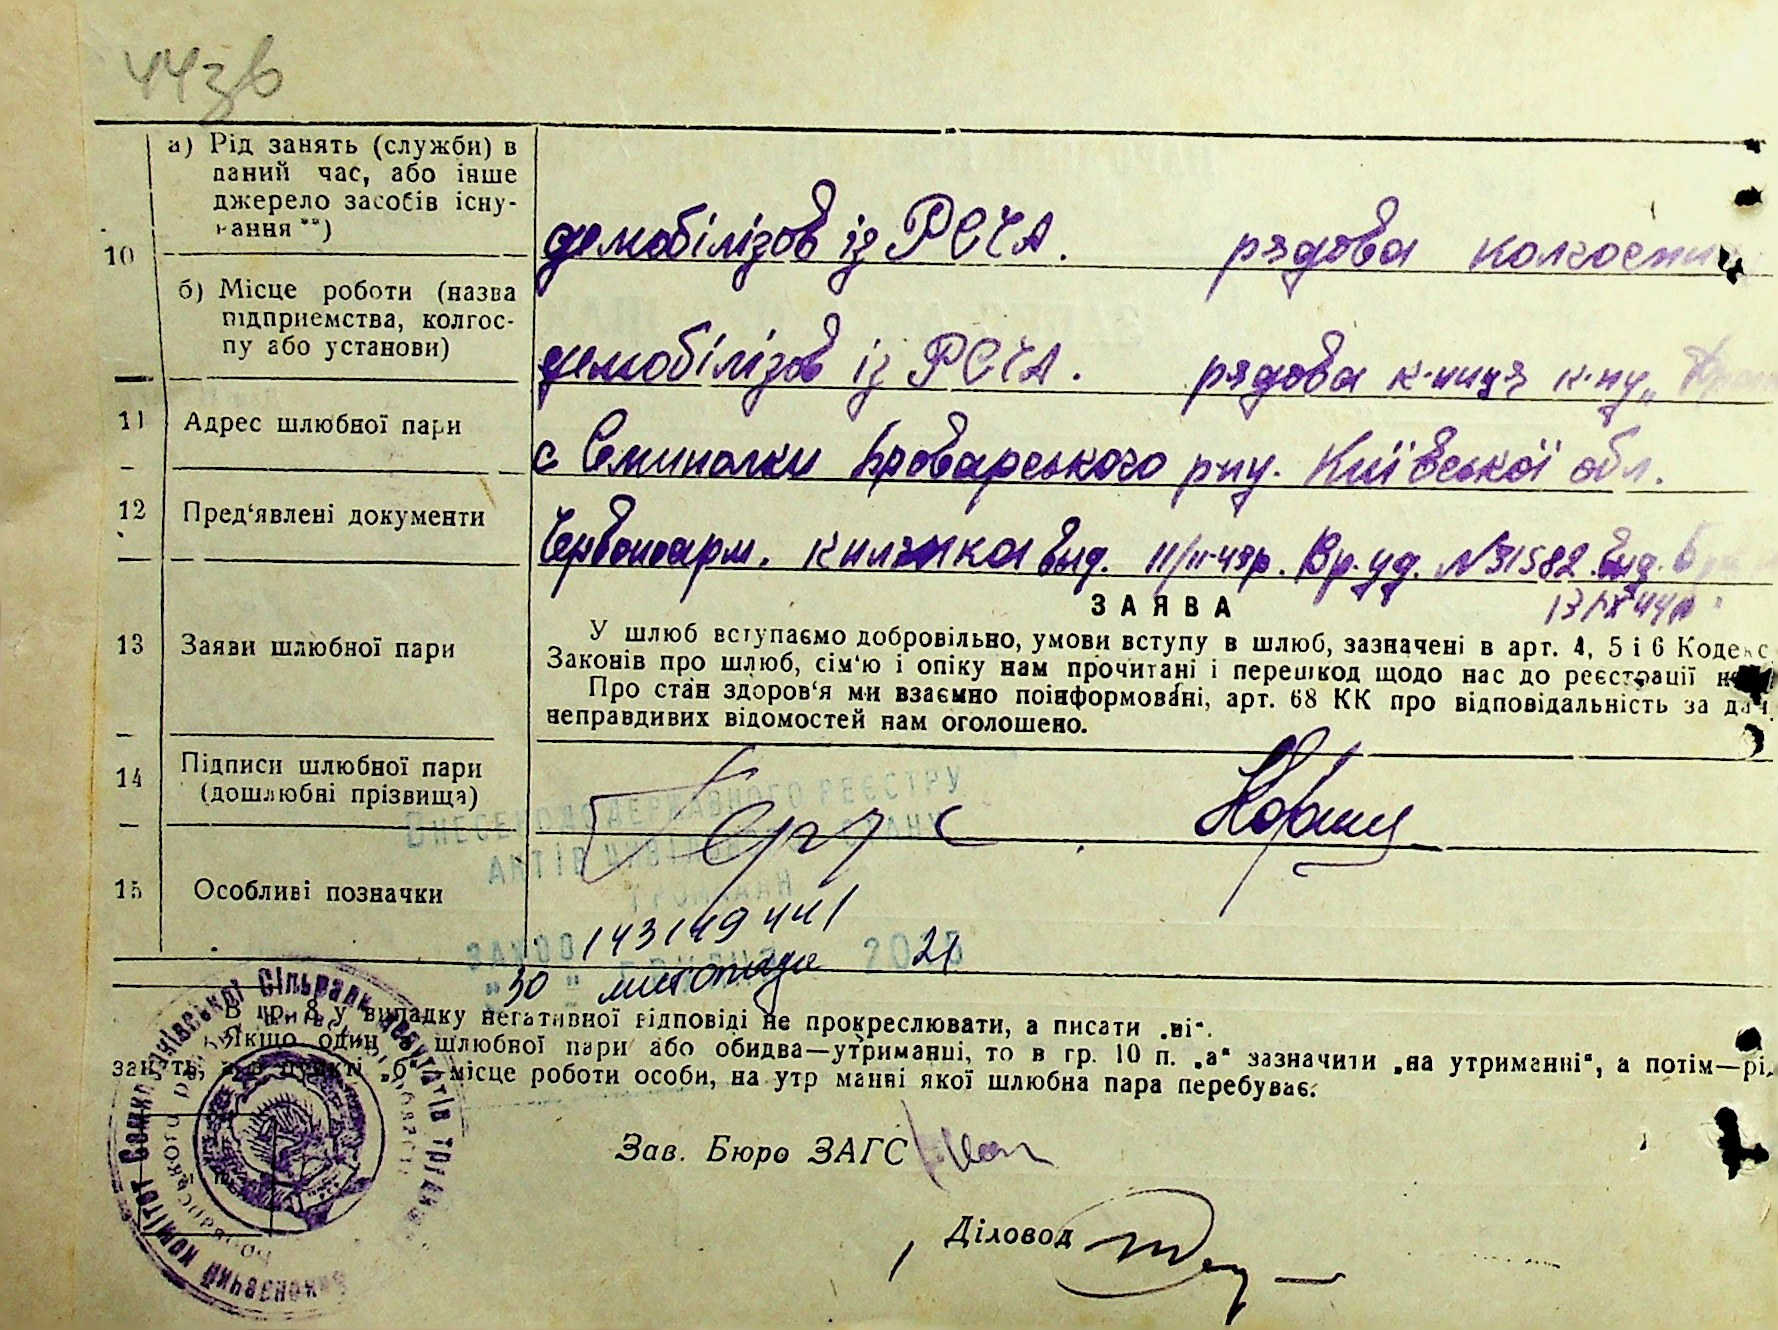 44зв
10
а) Рід занять (служби) в
даний час, або інше
джерело засобів існу-
вання **)
демобілізов із РСЧА. рядова колгосп
б) Місце роботи (назва
підприємства, колгос-
пу або установи)
демобілізов із РСЧА. рядова к-ниця к-пу „
11 Адрес шлюбної пари
с Семиполки Броварського р-ну. Київської обл.
12 Пред'явлені документи
Червоноарм. книжка вид. Вр. уд. №31582. вид.
ЗАЯВА
13 Заяви шлюбної пари
У шлюб вступаємо добровільно, умови вступу в шлюб, зазначені в арт. 4, 5 і 6 Кодекс
Законів про шлюб, сім'ю і опіку нам прочитані і перешкод щодо нас до реєстрації
Про стан здоров'я ми взаємно поінформовані, арт. 68 КК про відповідальність за
неправдивих відомостей нам оголошено.
14 Підписи шлюбної пари
(дошлюбні прізвища)
ВНЕСЕНО ДО ДЕРЖАВНОГО РЕЄСТРУ
АКТІВ ЦИВІЛЬНОГО СТАНУ
ГРОМАДЯН
15 Особливі позначки
143149441
30 листопада 21
В гр. 8 у випадку негативної відповіді не прокреслювати, а писати „ні“.
Якщо один шлюбної пари або обидва—утриманці, то в гр. 10 п. „а“ зазначити „на утриманні“, а потім—рі
занять, а в пункті „б“ місце роботи особи, на утриманні якої шлюбна пара перебуває.
Зав. Бюро ЗАГС
Діловод
Виконавчий комітет Семиполківської Сільради депутатів трудящ